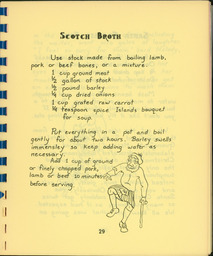 SCOTCH BROTH
Use stock made from boiling lamb,
pork or beef bones, or a mixture.
1 cup ground meat
1/2 gallon of stock
1/2 pound barley
1/4 cup dried onions
1 cup grated raw carrot
1/4 teaspoon Spice Islands bouquet
for soup.
Put everything in a pot and boil
gently for about two hours. Barley swells
immensley so keep adding water as
necessary.
Add 1 cup of ground
or finely chopped pork,
lamb or beef 10 minutes
before serving.
29